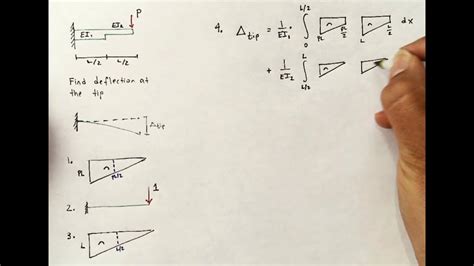 P
EI₁
L/2 L/2
Find deflection at
the tip
Δtip
1. PL PL/2
2. 1
3. L L/2
4. Δtip = 1/EI₁ ∫ L/2 0 PL PL/2 L L/2 dx
+ 1/EI₂ ∫ L L/2